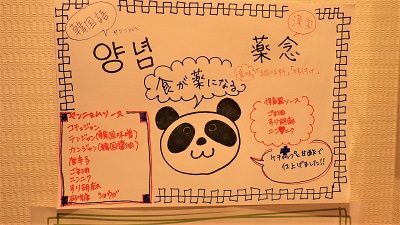 韓国語
漢字
양념
薬念
食が薬になる。
ヤンニョムソース
コチュジャン
テンジャン(韓国味噌)
カンジャン(韓国醤油)
唐辛子
ごま油
ニンニク
すり胡麻
砂糖 ショウガ
ごま油
すり胡麻
ケチャップ&甘酢で
仕上げました!!